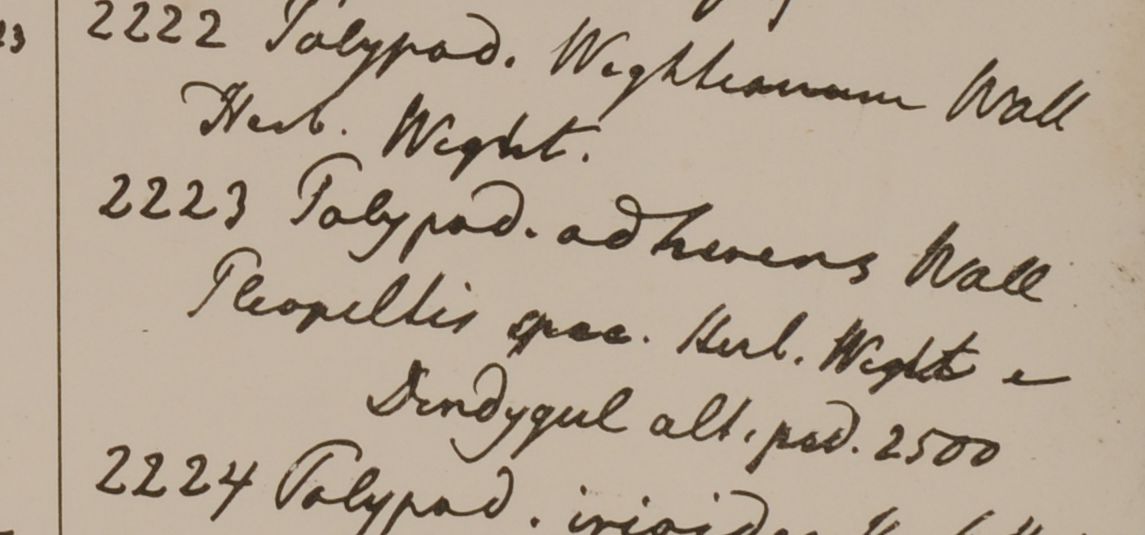 23
2222 Polypod. Wightianum Wall
Herb. Wight.
2223 Polypod. adherens Wall
Pleopeltis spec. Herb. Wight e
Dindygul alt. ped. 2500
2224 Polypod. irioides